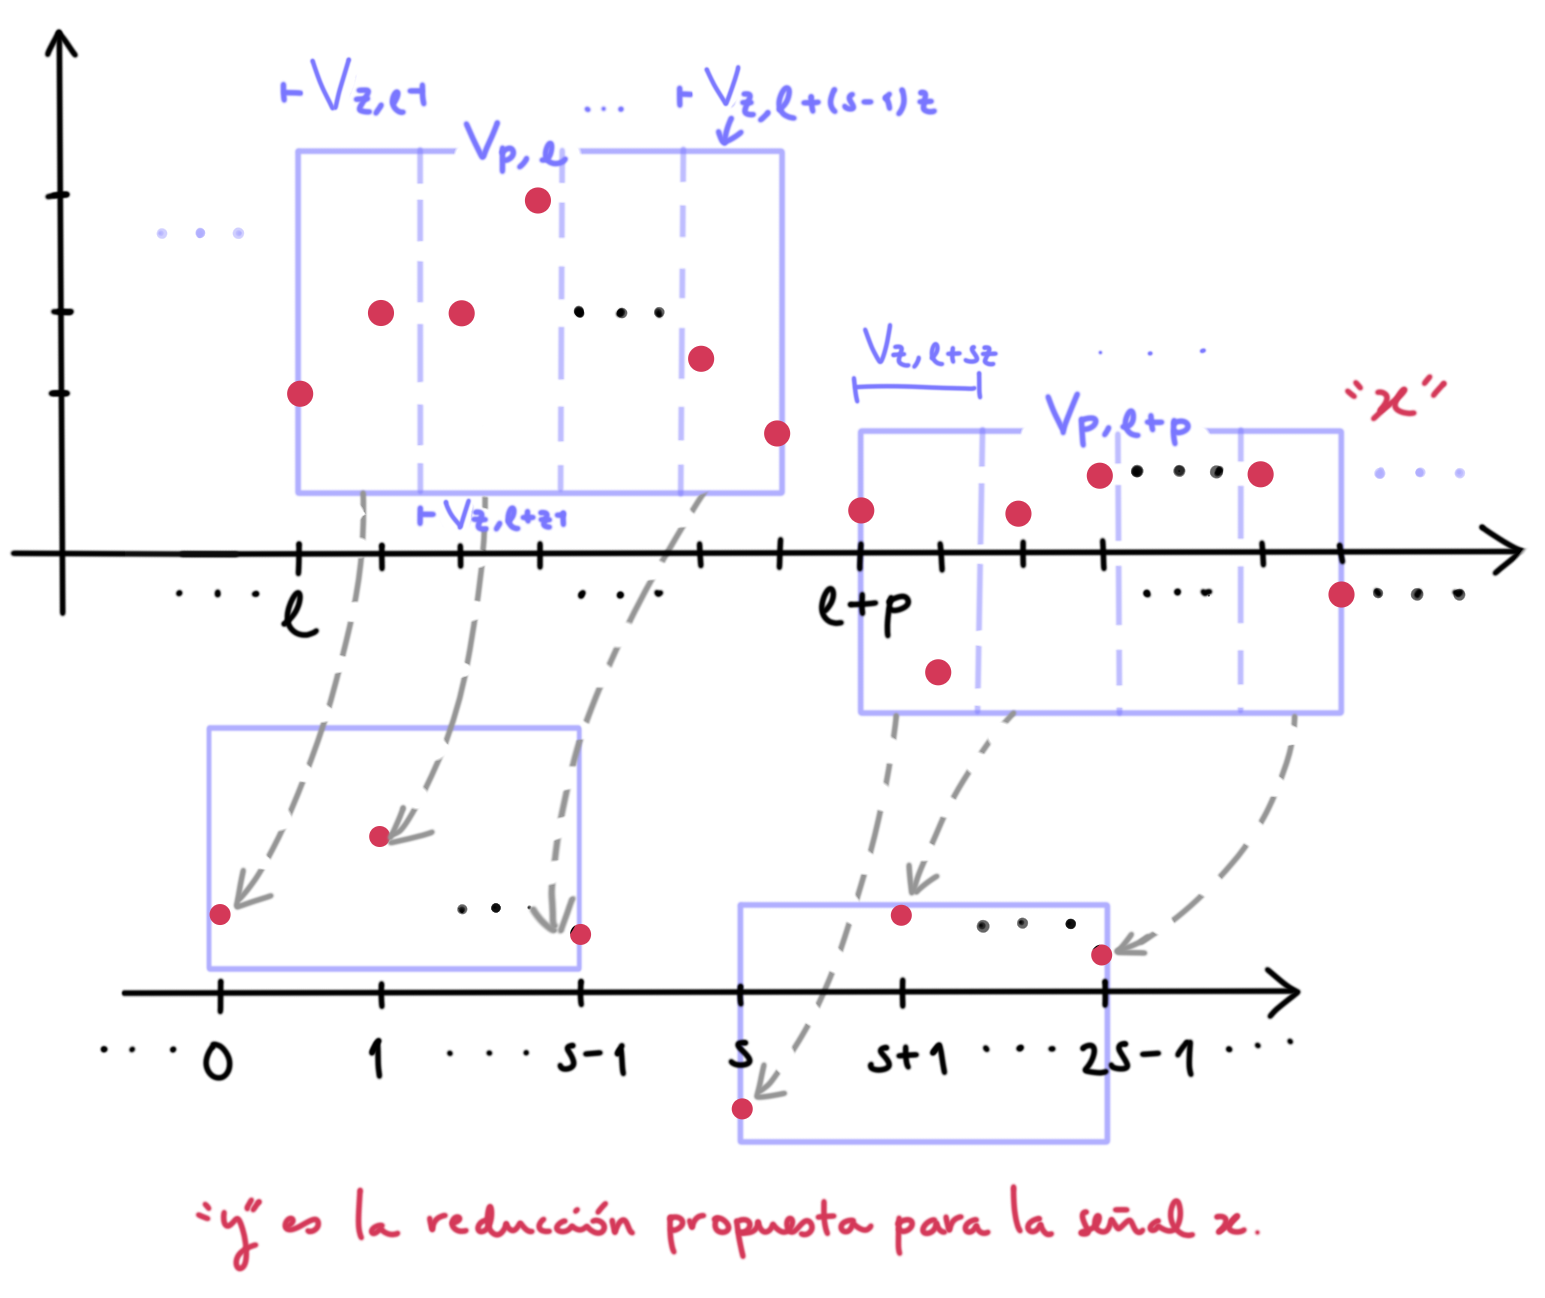 V_{z,ℓ} ... V_{z,ℓ+(s-1)z}
V_{p,ℓ}
...
V_{z,ℓ+sz} . . .
"x"
V_{p,ℓ+p}
... ...
V_{z,ℓ+z}
... ℓ ... ℓ+p ... ...
... ...
... 0 1 ... s-1 s s+1 ... 2s-1 ...
"y" es la reducción propuesta para la señal x.